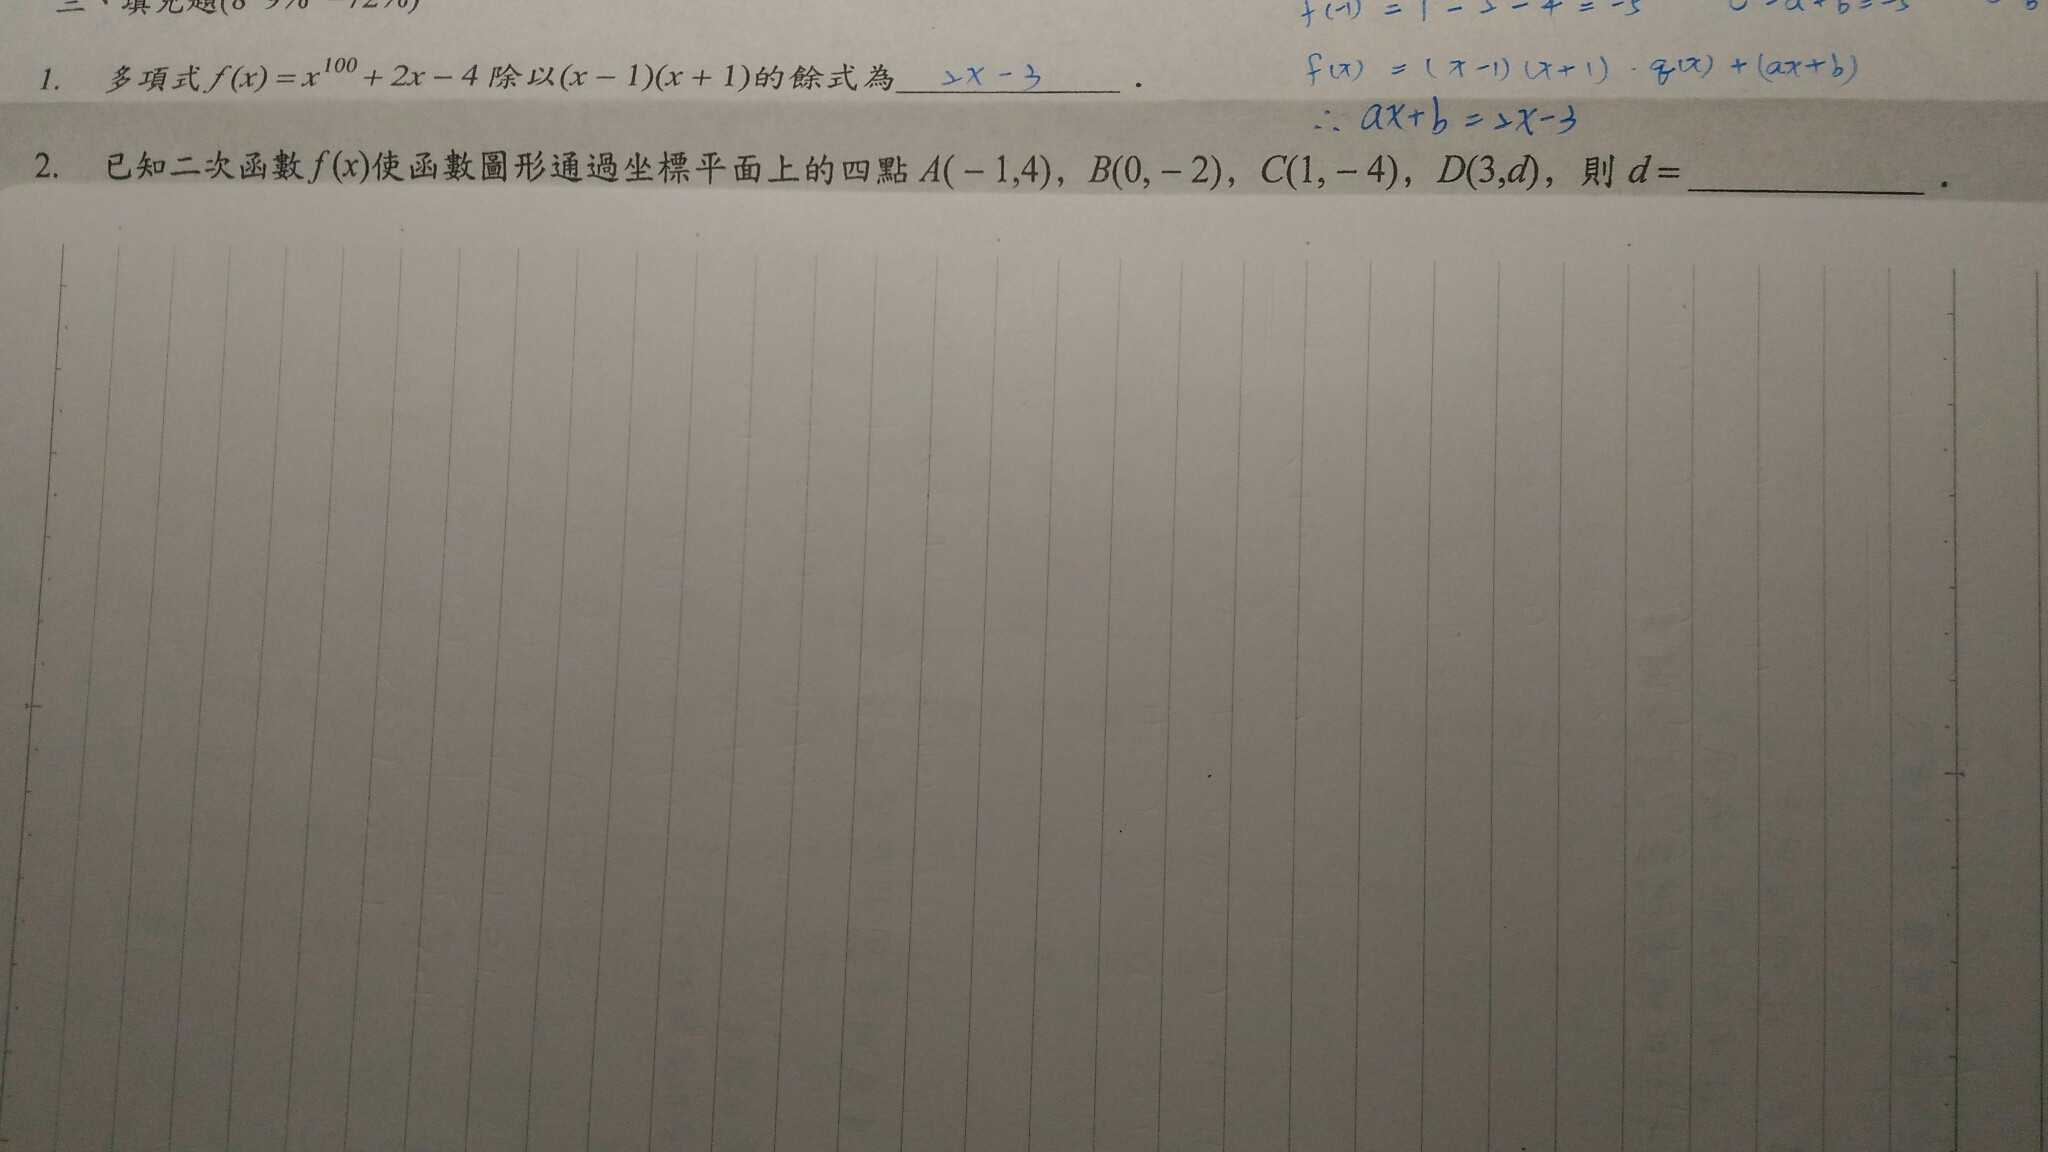 三、填充題(8*9% =72%)
f(-1) = 1 - 2 - 4 = -5
1. 多項式 f(x) = x^100 + 2x - 4 除以(x - 1)(x + 1)的餘式為 2x - 3 .
f(x) = (x-1)(x+1)·q(x) + (ax+b)
∴ ax+b = 2x-3
2. 已知二次函數 f(x)使函數圖形通過坐標平面上的四點 A(-1,4), B(0,-2), C(1,-4), D(3,d), 則 d = ____________ .